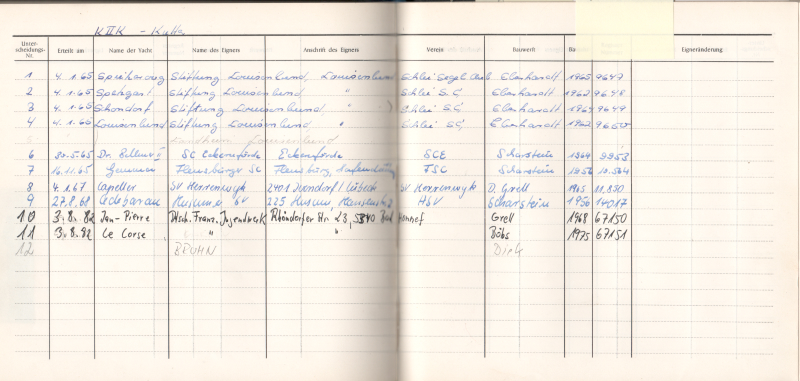 KIIK - Kutter
Unter- scheidungs- Nr. Erteilt am Name der Yacht Name des Eigners Anschrift des Eigners Verein Bauwerft Eigneränderung
1 4.1.65 Stiftung Louisenlund, Louisenlund Schlei Segel Club Eberhardt 1965 9647
2 4.1.65 Stiftung Louisenlund " Schlei S.C. Eberhardt 1962 9648
3 4.1.65 Schondorf Stiftung Louisenlund " Schlei S.C. Eberhardt 1964 9649
4 4.1.65 Louisenlund Stiftung Louisenlund " Schlei S.C. Eberhardt 1962 9650
Landheim Louisenlund
6 30.5.65 SC Eckernförde Eckernförde SCE Scharstein 1964 9953
7 16.11.65 Flensburger SC Flensburg, FSC Scharstein 1956
8 4.1.67 Capeller SV Herrenwyk 2401 Lübeck SV Herrenwyk D. Grell 1965 11.850
9 27.8.68 Husumer SV 225 Husum, HSV Scharstein 1956 14017
10 3.8.82 Jan-Pierre Dtsch. Franz. Jugendwerk Rhöndorfer Str. 23, 5340 Bad Honnef Grell 1968 67150
11 3.8.82 Le Corse " " Böbs 1975 67151
12 BRUHN Dirk